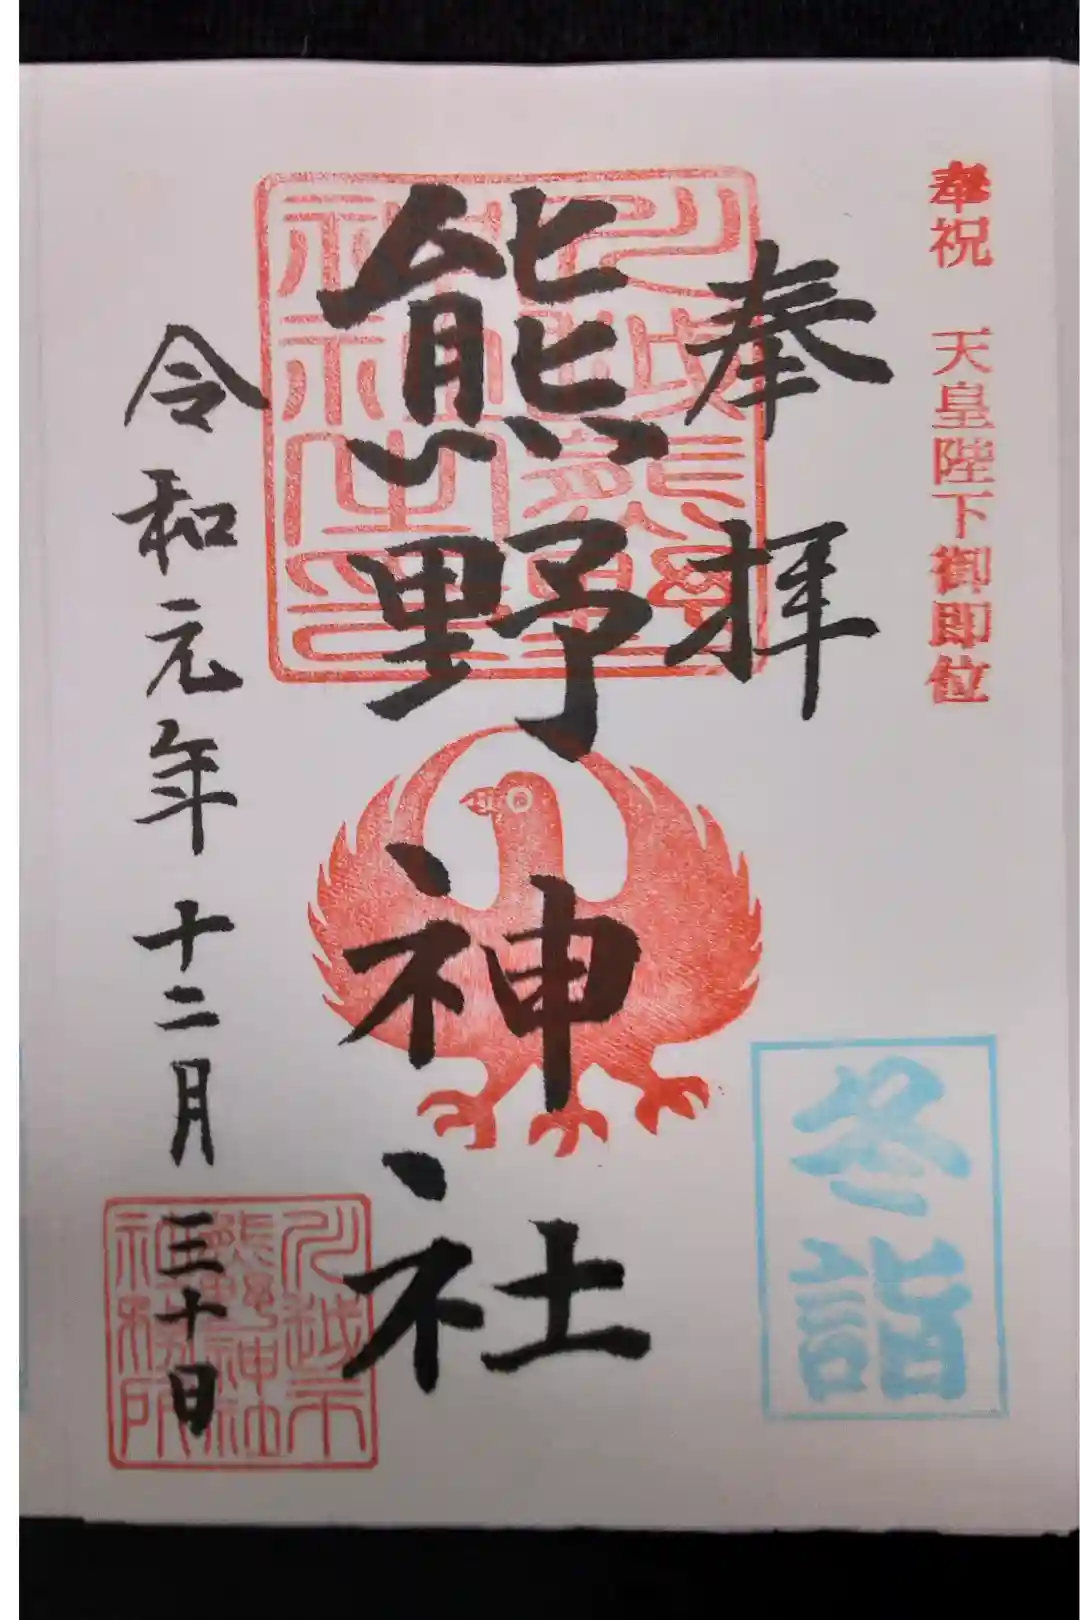 奉祝 天皇陛下御即位
奉拝
熊野神社
令和元年十二月三十日
冬詣
川越熊野神社之印
川越市熊野神社社務所